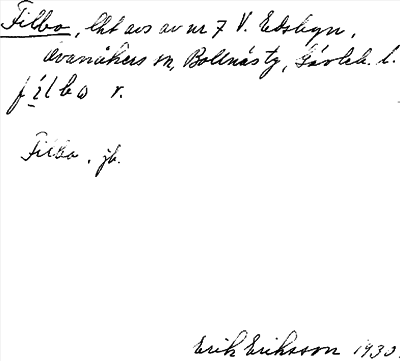 Filbo, lht avs av nr 7 V. Edsbyn,
Ovanåkers sn, Bollnäs tg, Gävleb. l.
fìlbω r.
Filbo, jb.
Erik Eriksson 1930.